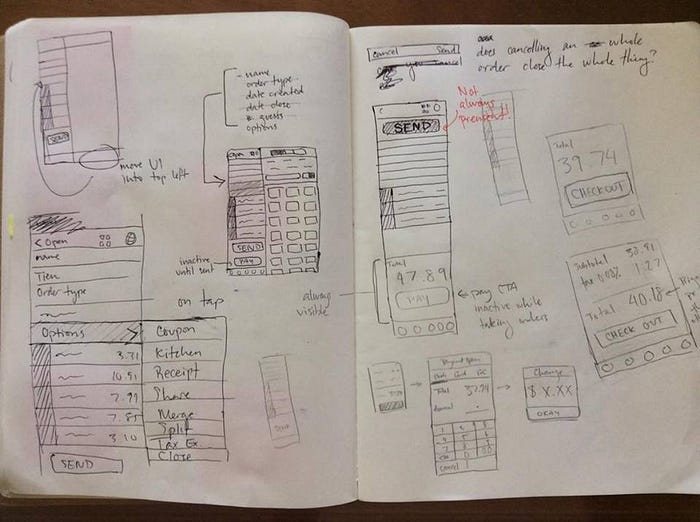 SEND
move UI
into top left
- name
order type
date created
date close
# guests
options
Open
SEND
PAY
inactive
until sent
< Open
name
Item
Order type
on tap
Options >
3.31
10.91
7.99
7.85
3.10
SEND
Coupon
Kitchen
Receipt
Share
Merge
Split
Tax Ex.
Close
cancel Send
does cancelling an whole
order close the whole thing?
you cancel
Not
always
present!!
SEND
Total
47.89
PAY
always
visible
pay CTA
inactive while
taking orders
Total
39.74
CHECKOUT
Subtotal
tax
1.27
Total 40.18
CHECK OUT
Total 39.74
Cancel
Change
$ X.XX
OKAY